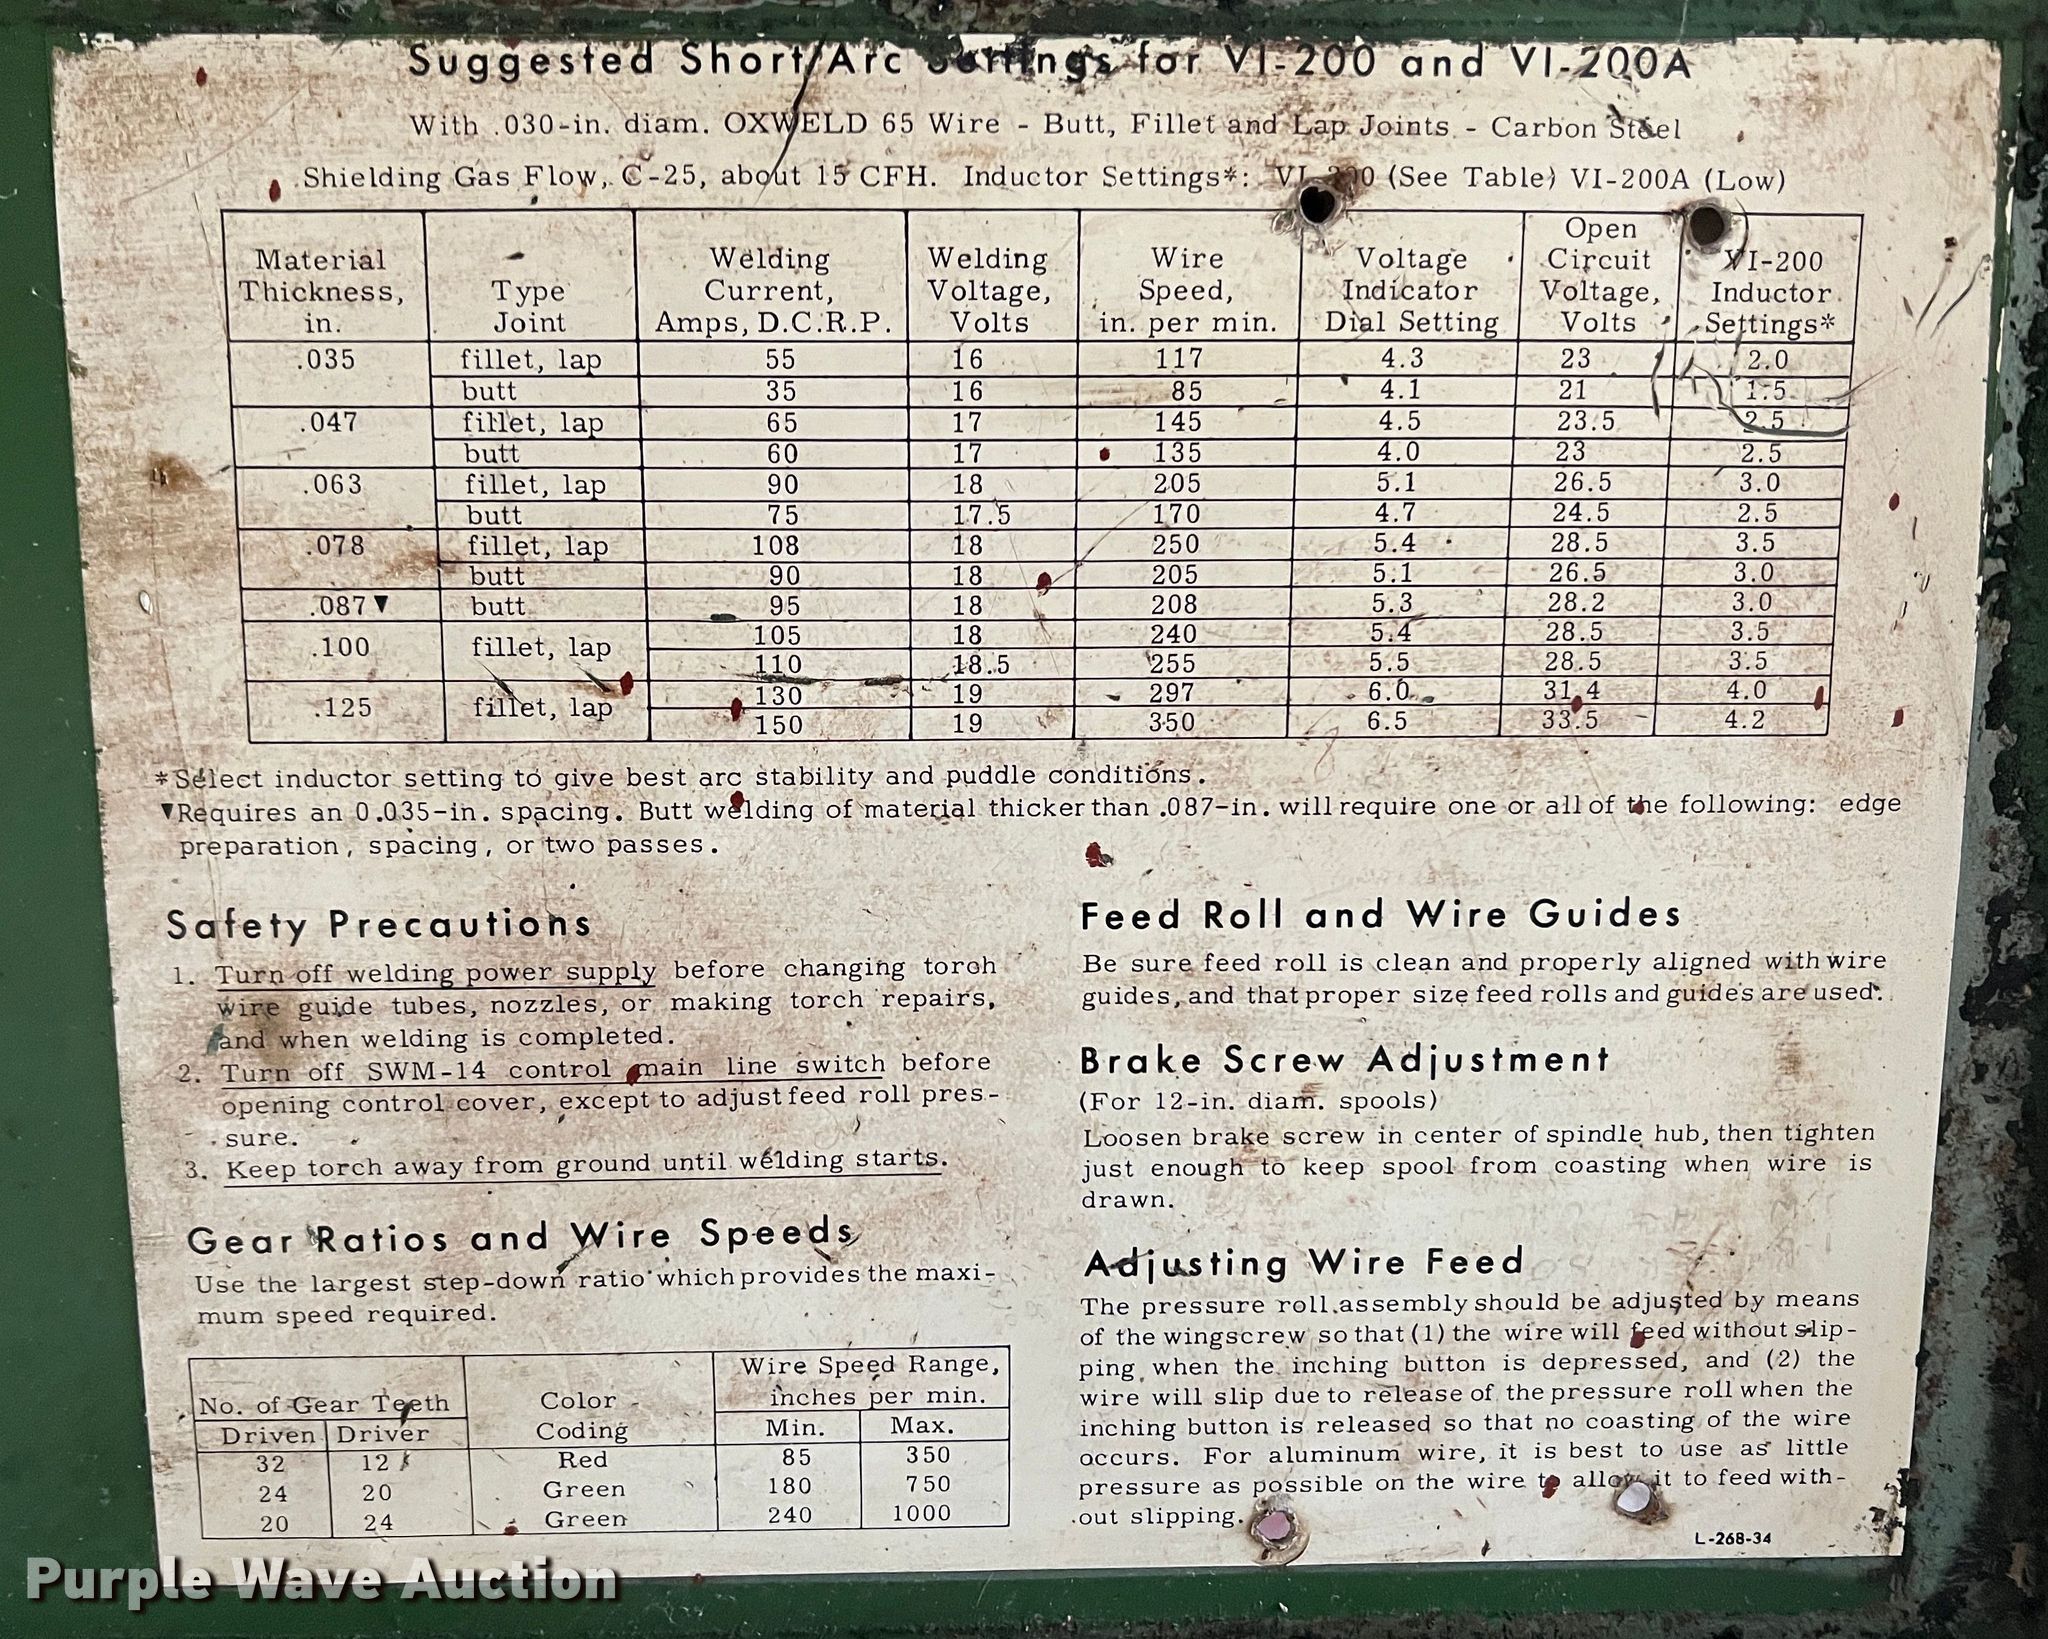 Suggested Short Arc Settings for VI-200 and VI-200A
With .030-in. diam. OXWELD 65 Wire - Butt, Fillet and Lap Joints - Carbon Steel
Shielding Gas Flow, C-25, about 15 CFH. Inductor Settings*: VI-200 (See Table) VI-200A (Low)
Material Thickness, in. | Type Joint | Welding Current, Amps, D.C.R.P. | Welding Voltage, Volts | Wire Speed, in. per min. | Voltage Indicator Dial Setting | Open Circuit Voltage, Volts | VI-200 Inductor Settings*
.035 fillet, lap 55 16 117 4.3 23 2.0
butt 35 16 85 4.1 21 1.5
.047 fillet, lap 65 17 145 4.5 23.5 2.5
butt 60 17 135 4.0 23 2.5
.063 fillet, lap 90 18 205 5.1 26.5 3.0
butt 75 17.5 170 4.7 24.5 2.5
.078 fillet, lap 108 18 250 5.4 28.5 3.5
butt 90 18 205 5.1 26.5 3.0
.087▼ butt 95 18 208 5.3 28.2 3.0
.100 fillet, lap 105 18 240 5.4 28.5 3.5
110 18.5 255 5.5 28.5 3.5
.125 fillet, lap 130 19 297 6.0 31.4 4.0
150 19 350 6.5 33.5 4.2
*Select inductor setting to give best arc stability and puddle conditions.
▼Requires an 0.035-in. spacing. Butt welding of material thicker than .087-in. will require one or all of the following: edge
preparation, spacing, or two passes.
Safety Precautions
1. Turn off welding power supply before changing torch
wire guide tubes, nozzles, or making torch repairs,
and when welding is completed.
2. Turn off SWM-14 control main line switch before
opening control cover, except to adjust feed roll pres-
sure.
3. Keep torch away from ground until welding starts.
Gear Ratios and Wire Speeds
Use the largest step-down ratio which provides the maxi-
mum speed required.
No. of Gear Teeth | Color Coding | Wire Speed Range, inches per min.
Driven Driver Min. Max.
32 12 Red 85 350
24 20 Green 180 750
20 24 Green 240 1000
Feed Roll and Wire Guides
Be sure feed roll is clean and properly aligned with wire
guides, and that proper size feed rolls and guides are used.
Brake Screw Adjustment
(For 12-in. diam. spools)
Loosen brake screw in center of spindle hub, then tighten
just enough to keep spool from coasting when wire is
drawn.
Adjusting Wire Feed
The pressure roll assembly should be adjusted by means
of the wingscrew so that (1) the wire will feed without slip-
ping when the inching button is depressed, and (2) the
wire will slip due to release of the pressure roll when the
inching button is released so that no coasting of the wire
occurs. For aluminum wire, it is best to use as little
pressure as possible on the wire to allow it to feed with-
out slipping.
L-268-34
Purple Wave Auction